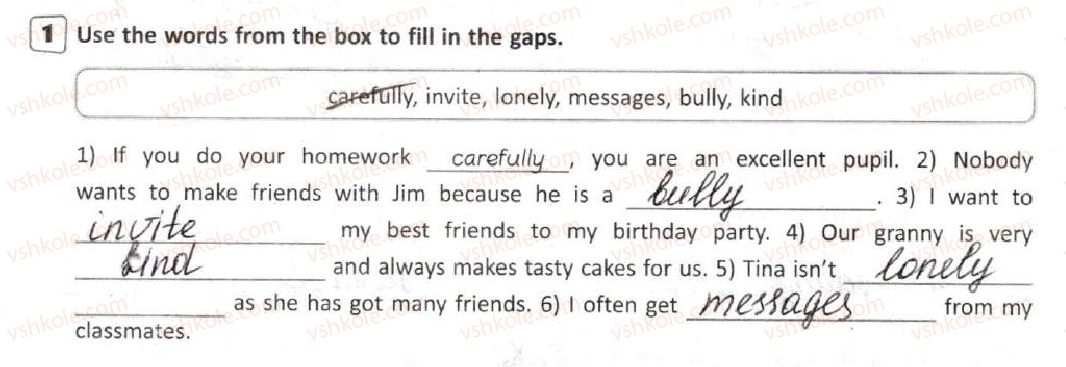 1 Use the words from the box to fill in the gaps.
carefully, invite, lonely, messages, bully, kind
1) If you do your homework carefully, you are an excellent pupil. 2) Nobody
wants to make friends with Jim because he is a bully. 3) I want to
invite my best friends to my birthday party. 4) Our granny is very
kind and always makes tasty cakes for us. 5) Tina isn't lonely
as she has got many friends. 6) I often get messages from my
classmates.
vshkole.com